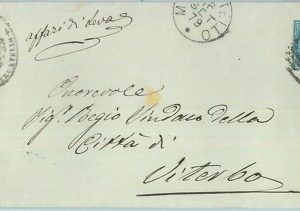 affari di leva
Onorevole
Sig. Regio Sindaco della
Città di
Viterbo